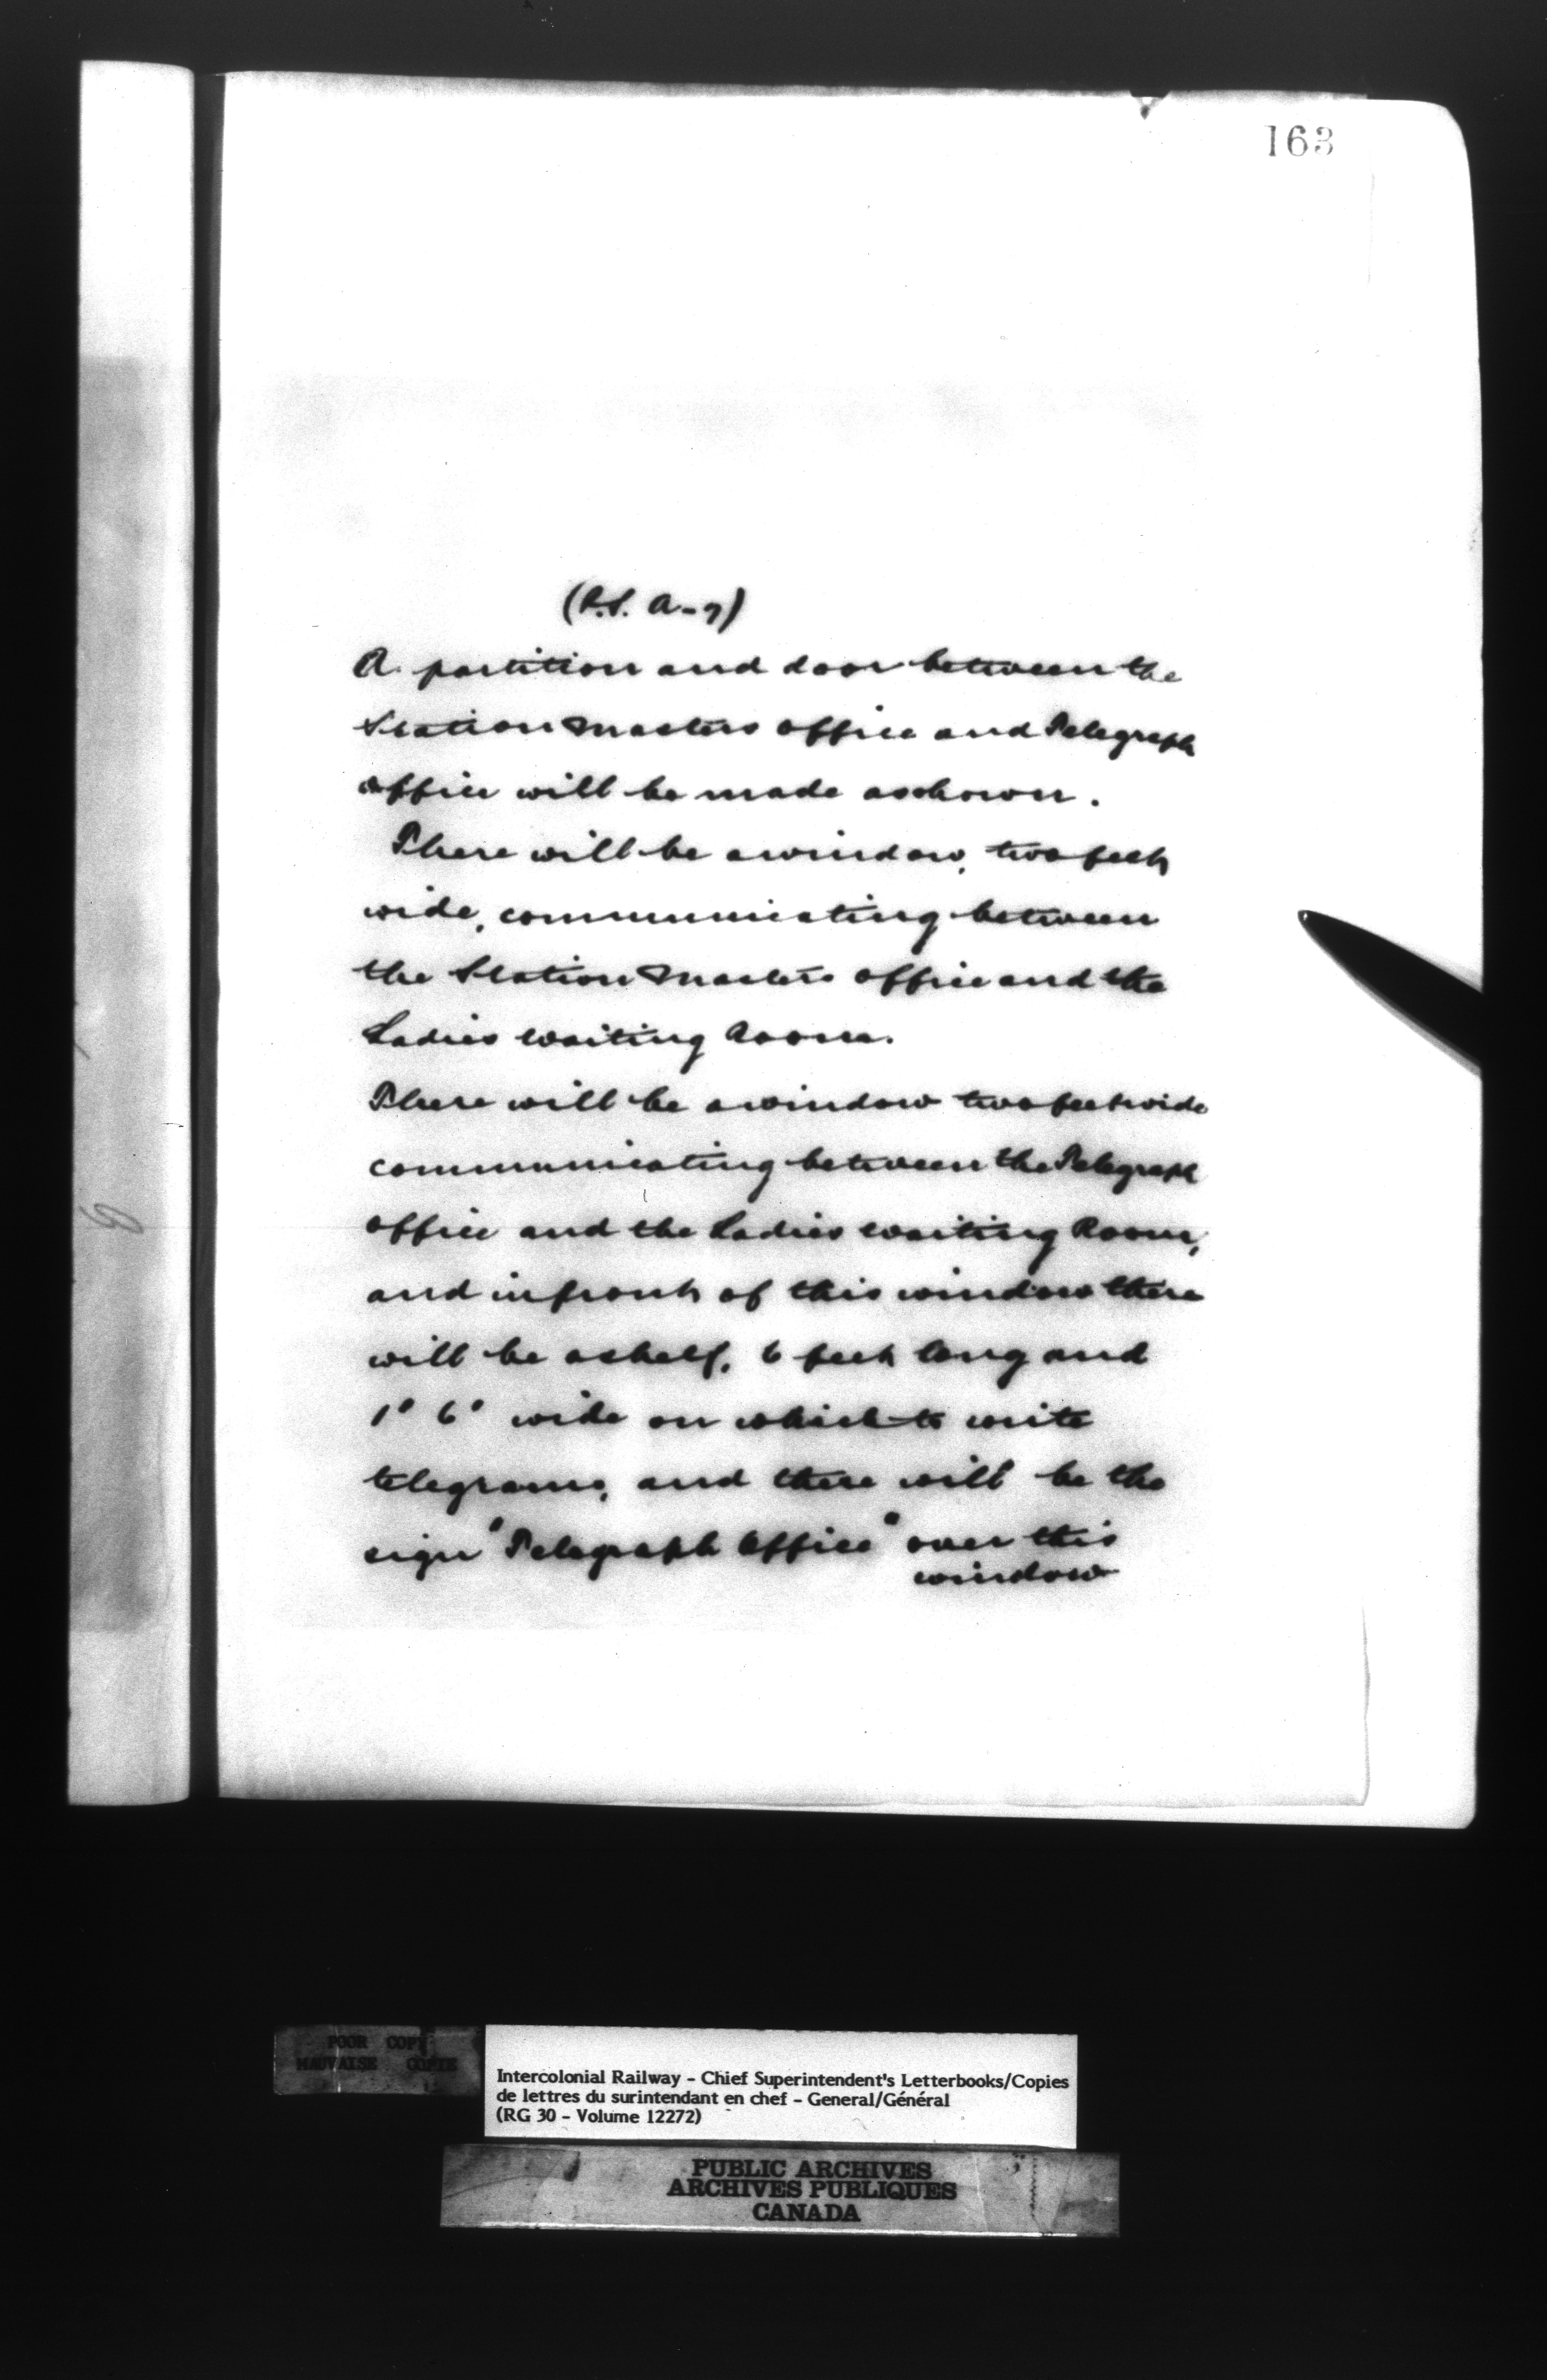 163
(P.S. A-7)
A partition and door between the
Station Masters office and Telegraph
office will be made as shown.
There will be a window, two feet
wide, communicating between
the Station Masters office and the
Ladies waiting Room.
There will be a window two feet wide
communicating between the Telegraph
office and the Ladies waiting Room,
and in front of this window there
will be a shelf, 6 feet long and
1' 6" wide on which to write
telegrams, and there will be the
sign "Telegraph Office" over this
window
POOR COPY
MAUVAISE COPIE
Intercolonial Railway - Chief Superintendent's Letterbooks/Copies
de lettres du surintendant en chef - General/Général
(RG 30 - Volume 12272)
PUBLIC ARCHIVES
ARCHIVES PUBLIQUES
CANADA